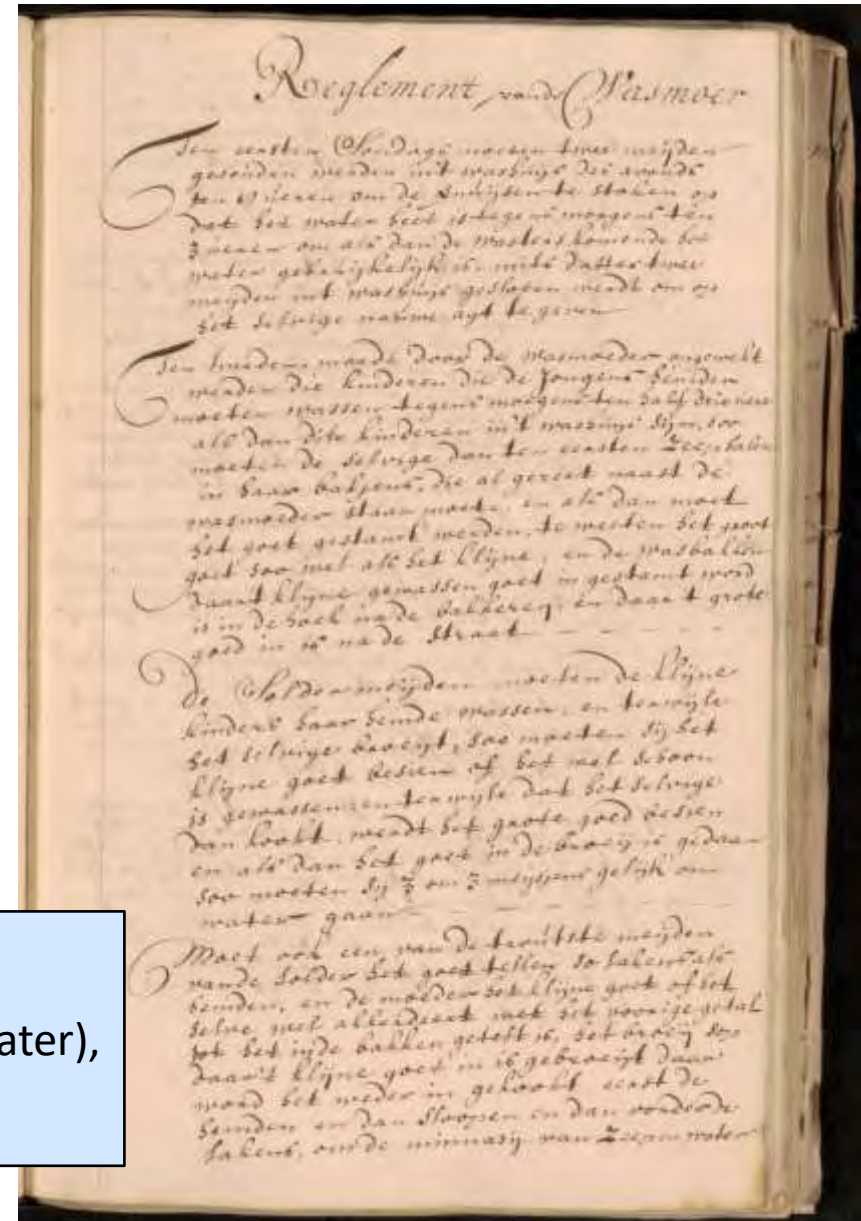 Reglement vande Wasmoer
Ten eersten Sondags moeten twee meijden
gesonden werden int washuijs des avonds
ten 9 ueren om de te stoken op
dat het water heet is tegens morgens ten
3 ueren om als dan de wasters komende het
water gebruijkelijk is, mits datter twee
meijden int washuijs gesloten werdt om op
het selvige nauwe agt te geven
Ten tweeden, moede door de wasmoeder
werden die kinderen die de Jongens hemden
moeten wassen tegens morgens ten half drie ueren
als dan dito kinderen in't washuijs sijn, soo
moeten de selvige dan ten eersten Zeep halen
in haar baljens, die al gereet naast de
wasmoeder staan moeten, en als dan moet
het goet gestamt werden, te weeten het groot
goet soo wel als het klijne, en de wasbakken
daar't klijne gewassen goet in gestamt word
is in de hoek na de bakkereij, en daar t grote
goed in is na de straat
De Soldermeijden moeten de klijne
kinders haar hemde wassen, en terwijle
het selvige broeijt, soo moeten sij het
klijne goet besien of het wel schoon
is gewassen, en terwijle dat het selvige
dan kookt, werdt het grote goed besien
en als dan het goet in de broeij is gedaan
soo moeten sij 3 om 3 meysjens gelijk om
water gaan
Moet ook een van de trouste meijden
vande solder het goet tellen so lakens als
hemden, en de moeder het klijne goet of het
selve wel met het voorige getal
het inde bakken getelt is, het broeij sop
daar't klijne goet in is gebroeijt daar
word het weder in gekookt eerst de
hemden en dan sloopen en dan
lakens, om de van Zeep en water
ater),